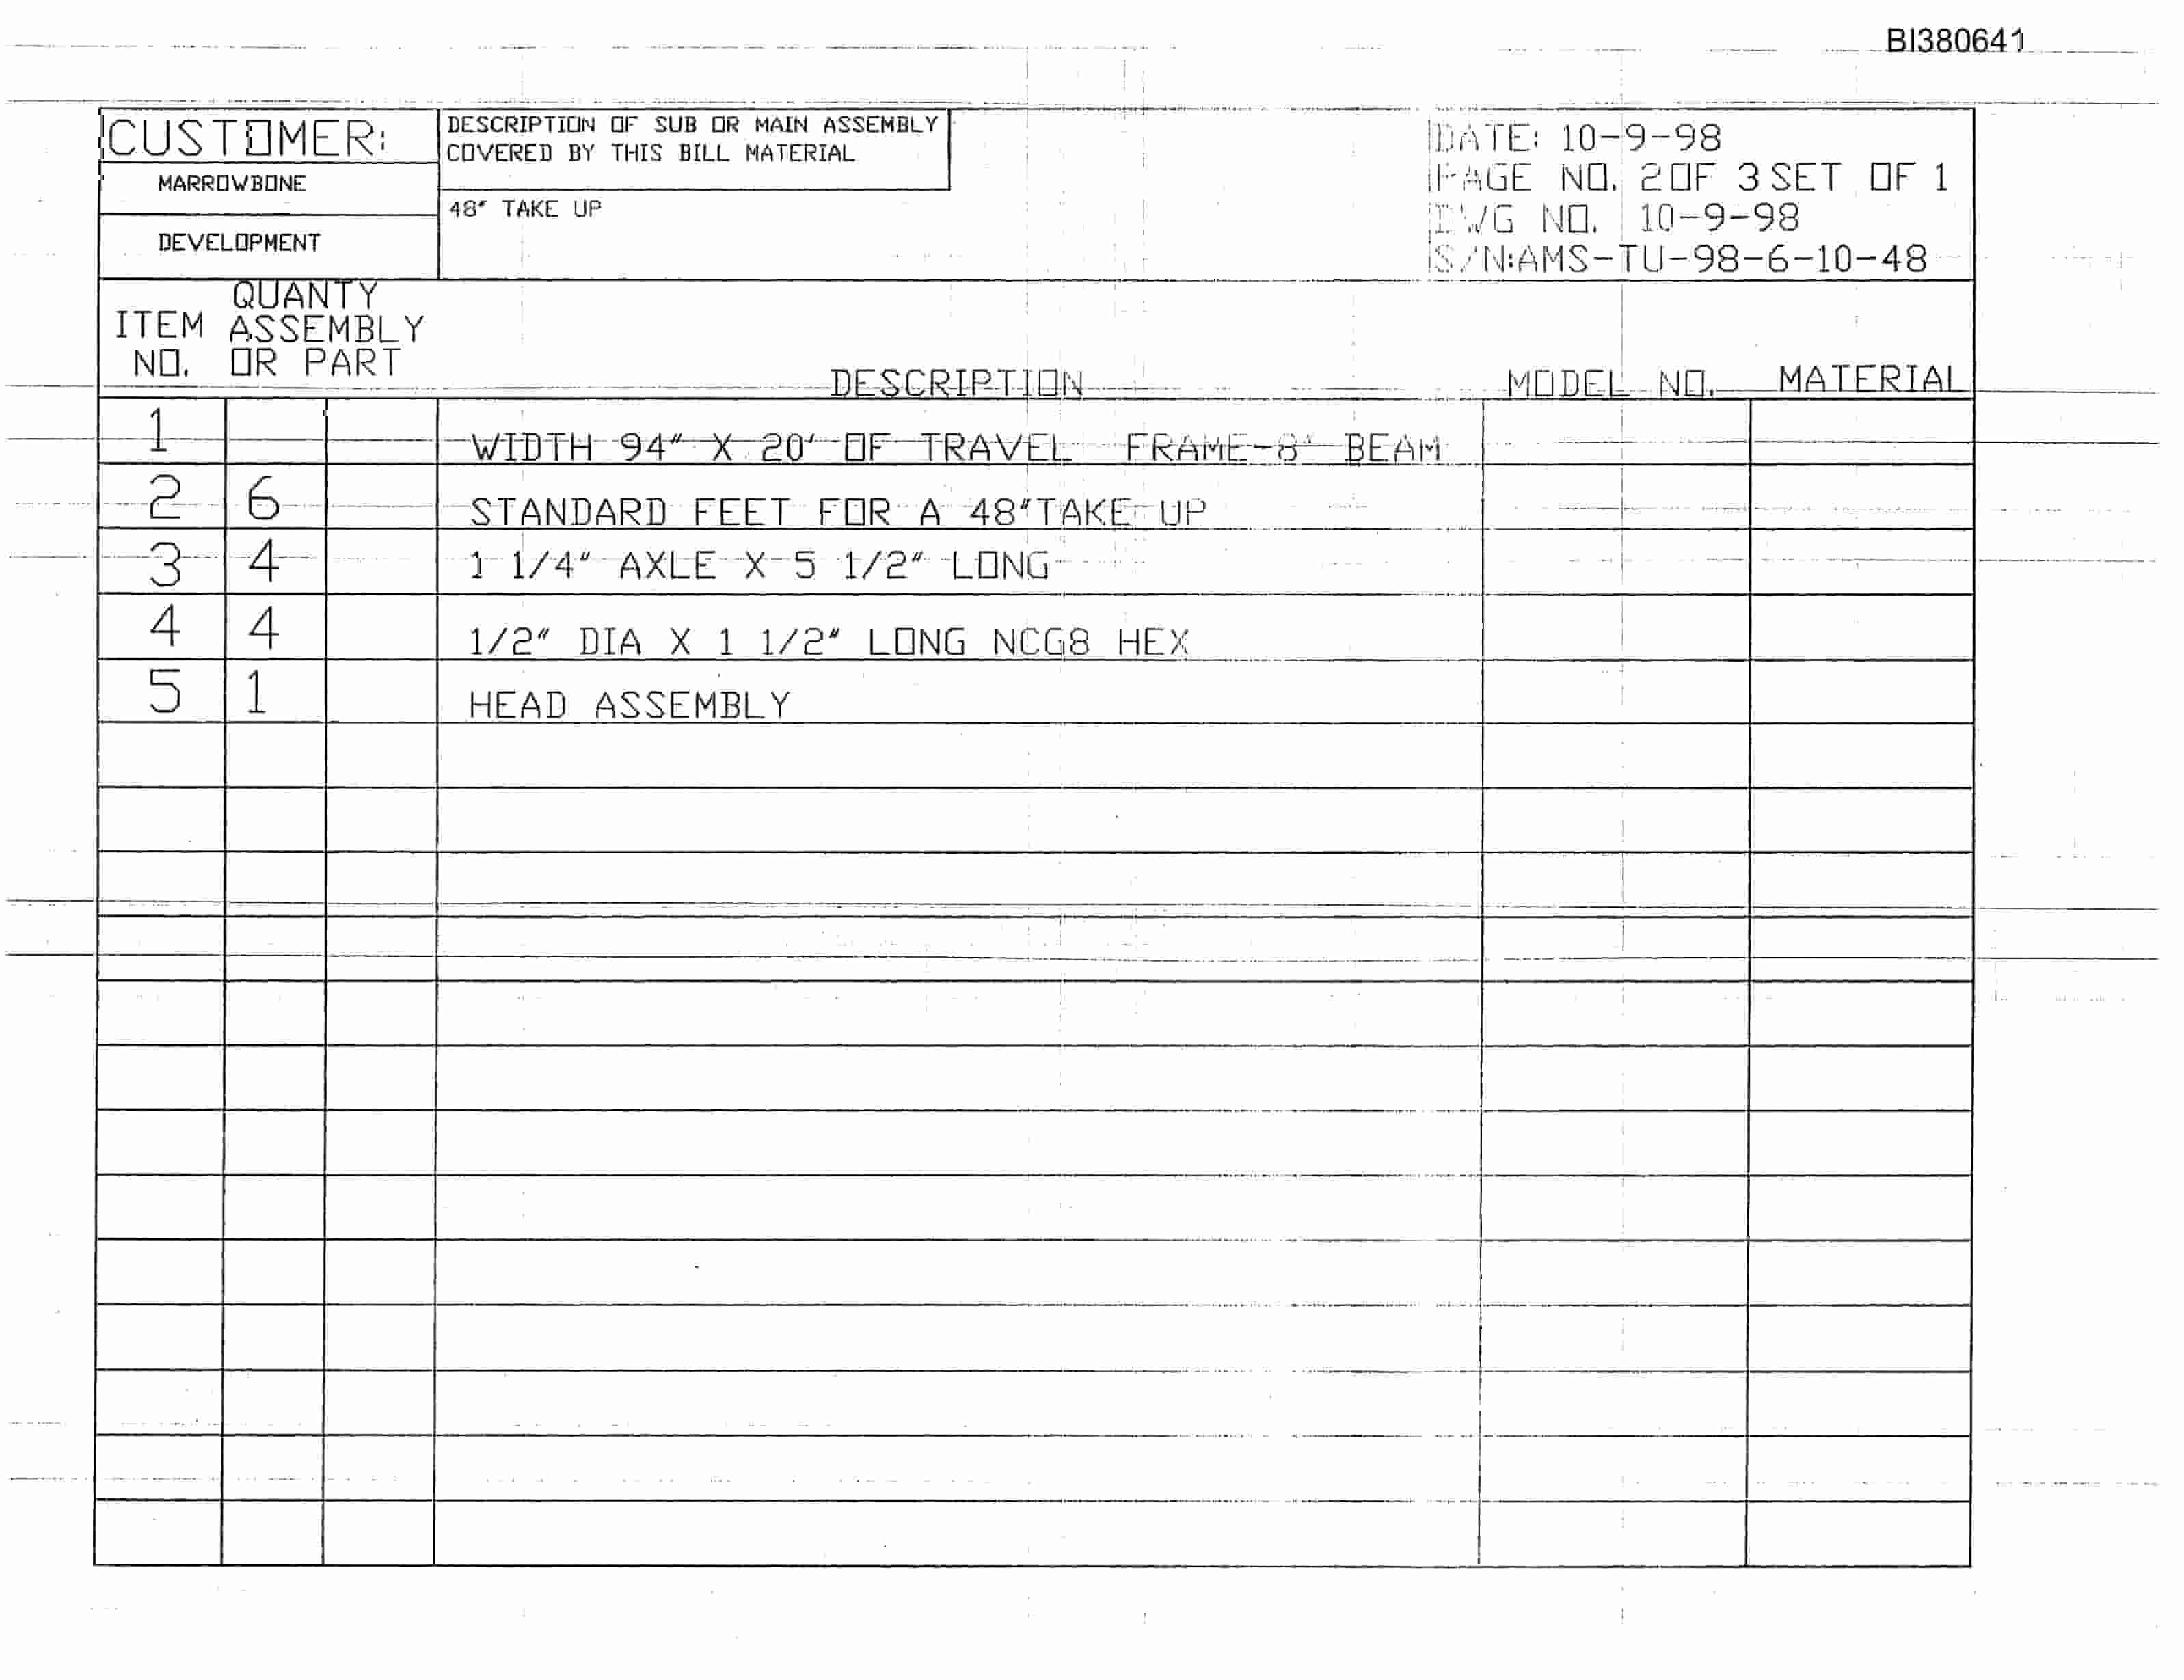 BI380641
CUSTOMER:
MARROWBONE
DEVELOPMENT
DESCRIPTION OF SUB OR MAIN ASSEMBLY
COVERED BY THIS BILL MATERIAL
48" TAKE UP
DATE: 10-9-98
PAGE NO. 2 OF 3 SET OF 1
DWG NO. 10-9-98
S/N:AMS-TU-98-6-10-48
ITEM NO.
QUANTY ASSEMBLY OR PART
DESCRIPTION MODEL NO. MATERIAL
1 WIDTH 94" X 20' OF TRAVEL FRAME-8" BEAM
2 6 STANDARD FEET FOR A 48"TAKE UP
3 4 1 1/4" AXLE X 5 1/2" LONG
4 4 1/2" DIA X 1 1/2" LONG NCG8 HEX
5 1 HEAD ASSEMBLY